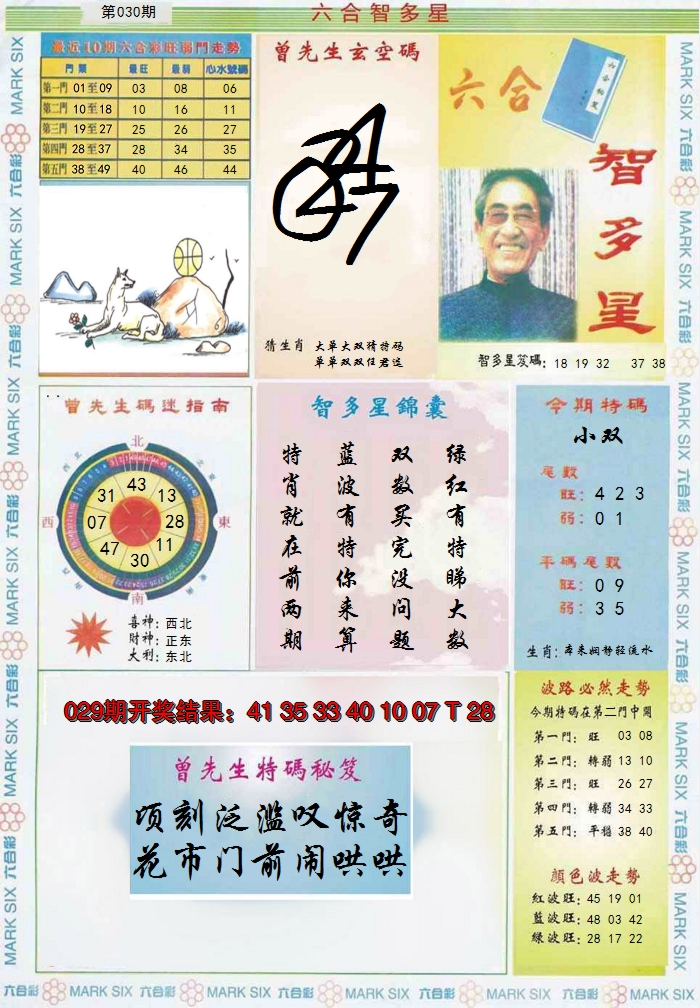 第030期
六合智多星
最近10期六合彩旺弱門走勢
門票 最旺 最弱 心水號碼
第一門 01至09 03 08 06
第二門 10至18 10 16 11
第三門 19至27 25 26 27
第四門 28至37 28 34 35
第五門 38至49 40 46 44
曾先生玄空碼
猜生肖 大单大双猜特码
单单双双任君选
六合
智多星
智多星笈碼: 18 19 32 37 38
曾先生碼迷指南
北
西北
東北
西
東
西南
東南
南
43
31 13
07 28
47 11
30
喜神: 西北
財神: 正东
大利: 东北
智多星錦囊
绿红有特睇大数
双数买完没问题
蓝波有特你来算
特肖就在前两期
今期特碼
小双
尾數
旺: 4 2 3
弱: 0 1
平碼尾數
旺: 0 9
弱: 3 5
生肖: 本来娴静轻流水
029期开奖结果: 41 35 33 40 10 07 T 28
曾先生特碼秘笈
顷刻泛滥叹惊奇
花市门前闹哄哄
波路必然走勢
今期特碼在第二門中開
第一門: 旺 03 08
第二門: 轉弱 13 10
第三門: 旺 26 27
第四門: 轉弱 34 33
第五門: 平穩 38 40
顏色波走勢
紅波旺: 45 19 01
藍波旺: 48 03 42
綠波旺: 28 17 22
六合彩 MARK SIX 六合彩 MARK SIX 六合彩 MARK SIX 六合彩 MARK SIX 六合彩 MARK SIX